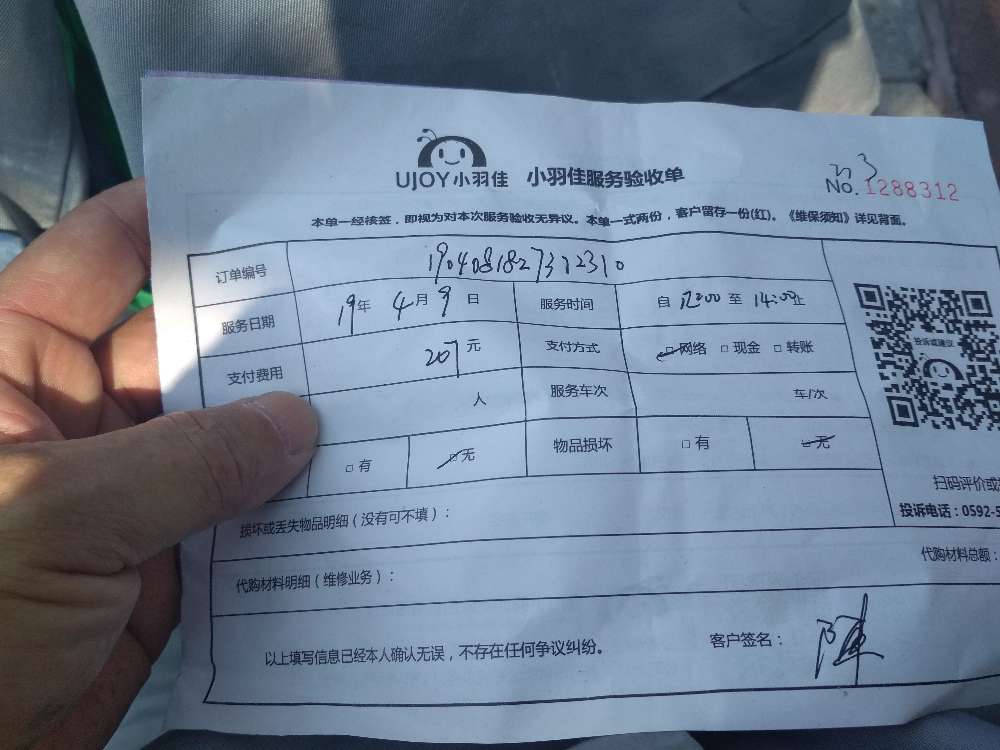 UJOY小羽佳 小羽佳服务验收单
No. 1288312
本单一经接签，即视为对本次服务验收无异议。本单一式两份，客户留存一份(红)。《维保须知》详见背面。
订单编号 1904081827372310
服务日期 19年 4月 9日 服务时间 自 12:00 至 14:00止
支付费用 207元 支付方式 □网络 □现金 □转账
投诉或建议
人 服务车次 车/次
□有 □无 物品损坏 □有 □无
扫码评价或
损坏或丢失物品明细（没有可不填）：
投诉电话：0592-5
代购材料明细（维修业务）：
代购材料总额：
以上填写信息已经本人确认无误，不存在任何争议纠纷。
客户签名： 陈